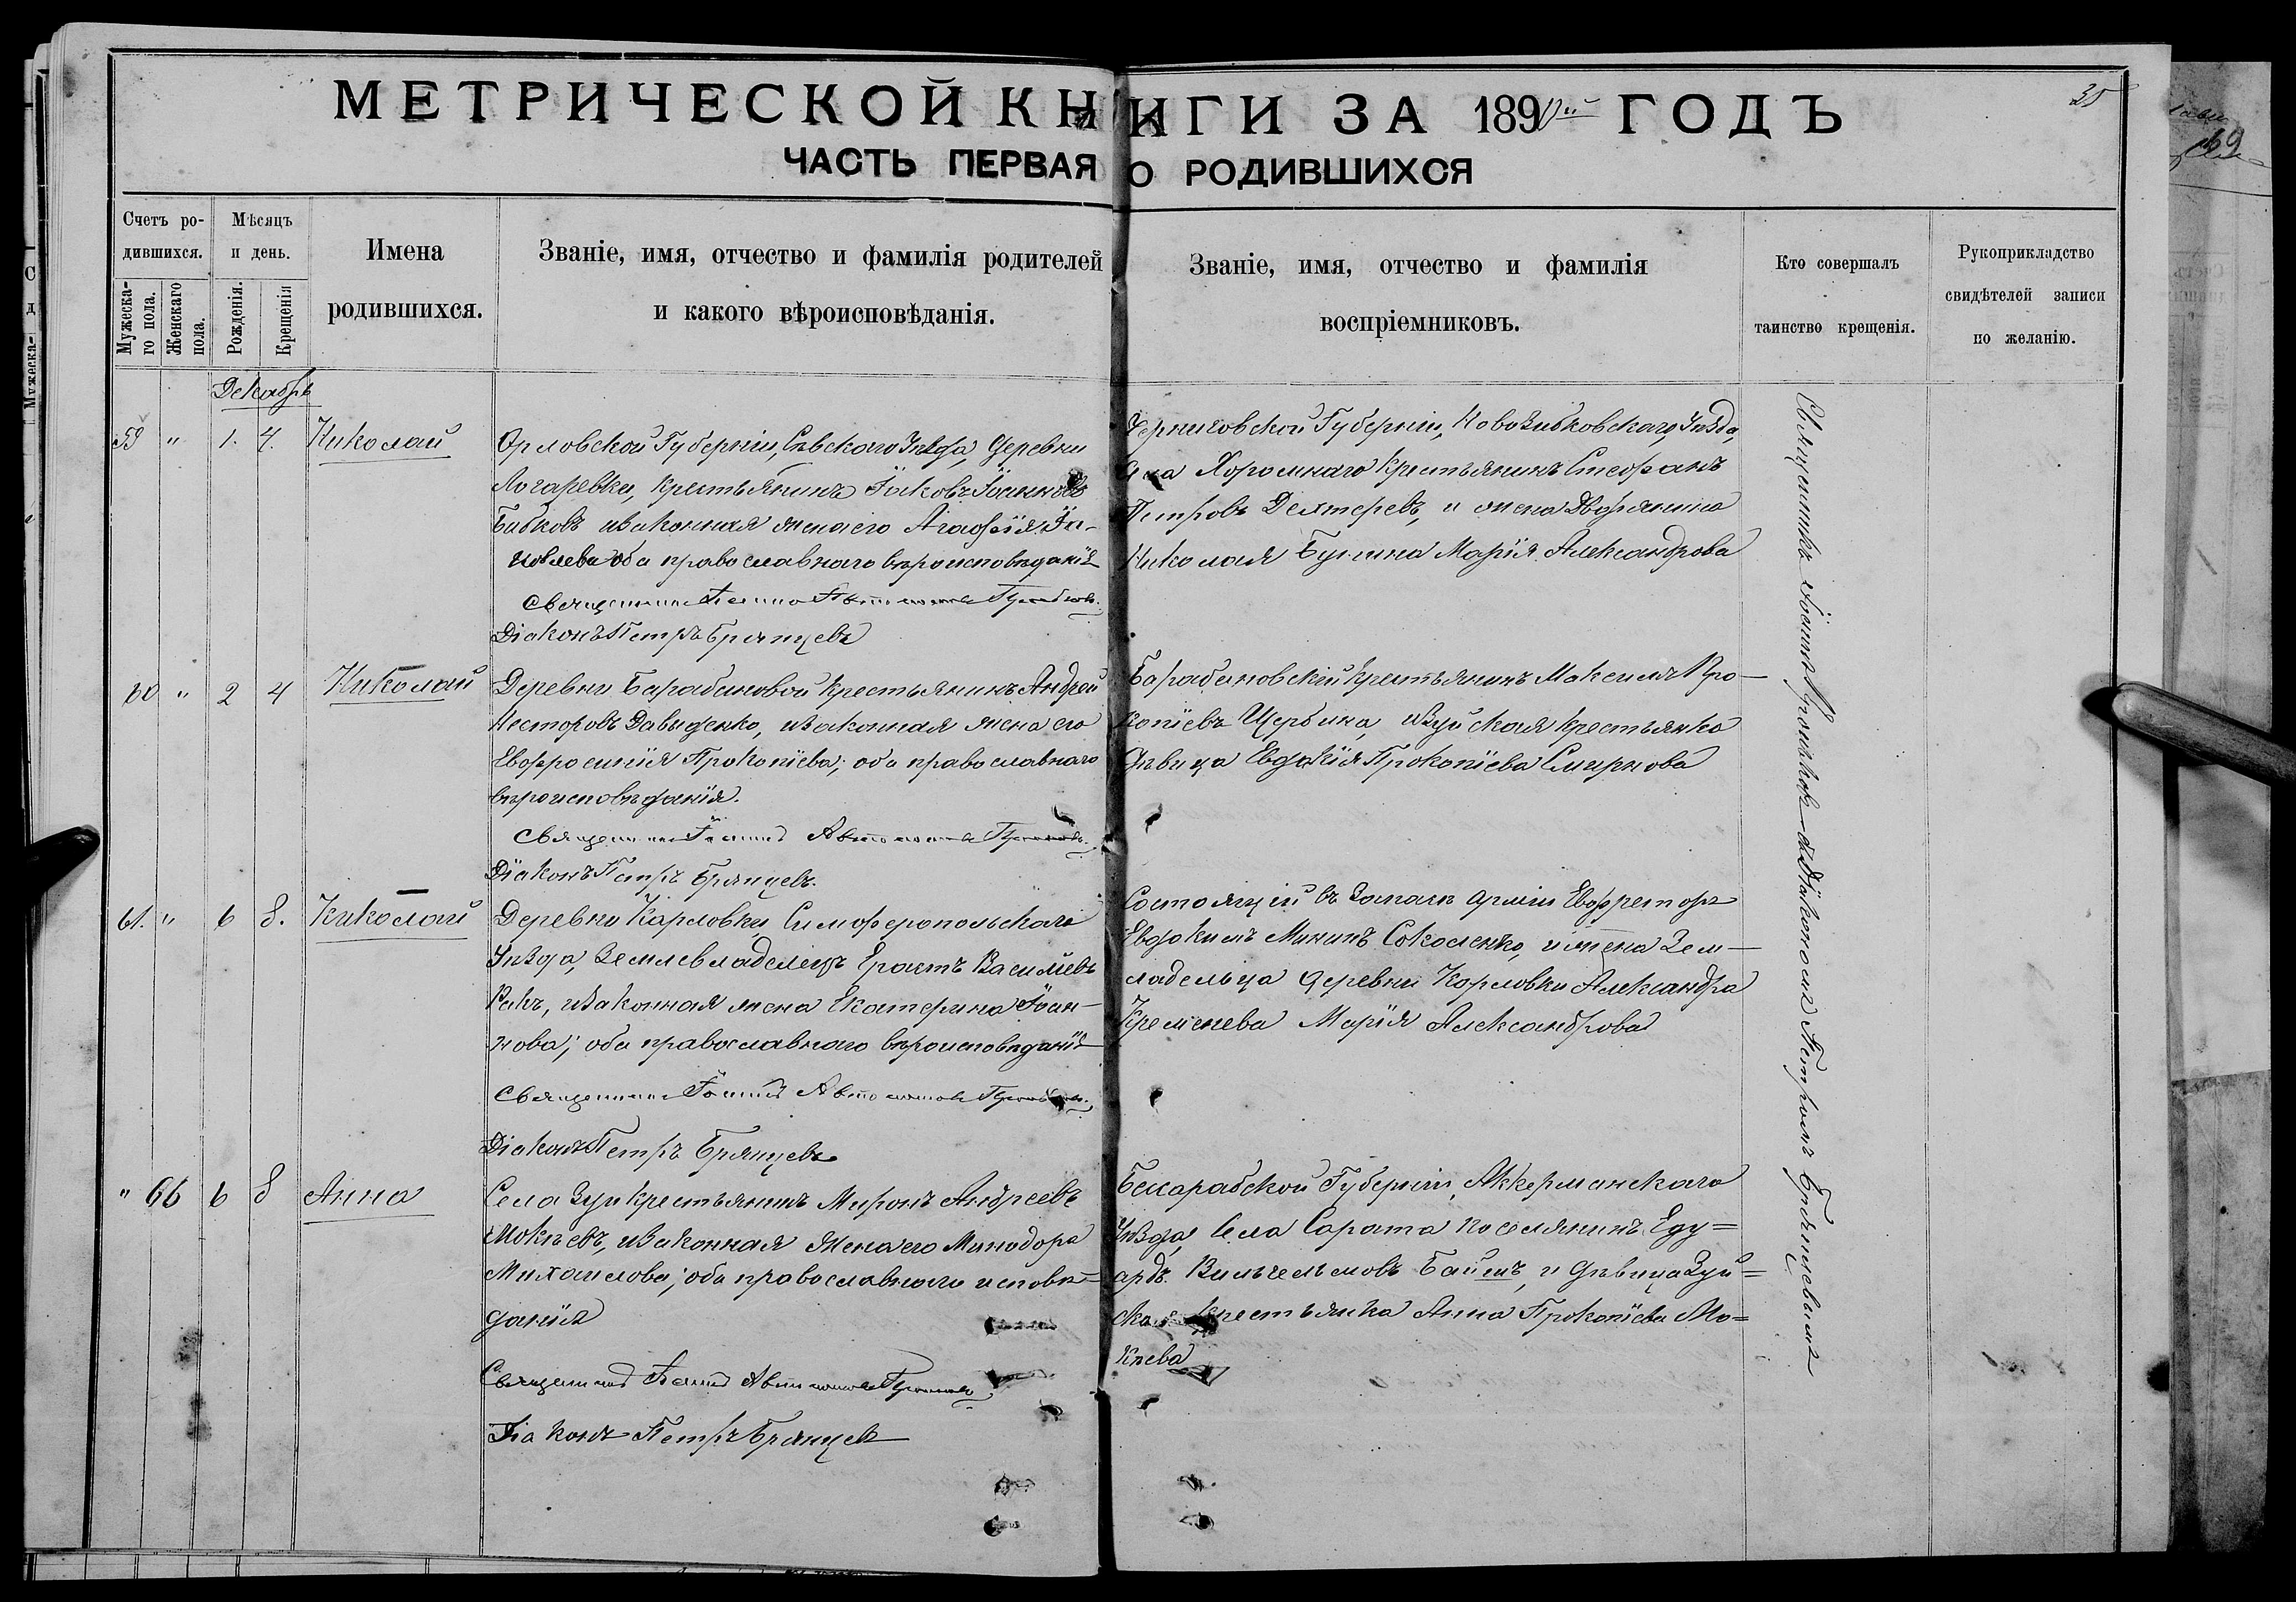 МЕТРИЧЕСКОЙ КНИГИ ЗА 1890й ГОДЪ
35
ЧАСТЬ ПЕРВАЯ О РОДИВШИХСЯ
Счетъ ро-
дившихся.
Мужеска-
го пола.
Женскаго
пола.
Мѣсяцъ
и день.
Рожденія.
Крещенія
Имена
родившихся.
Званіе, имя, отчество и фамилія родителей
и какого вѣроисповѣданія.
Званіе, имя, отчество и фамилія
воспріемниковъ.
Кто совершалъ
таинство крещенія.
Рукоприкладство
свидѣтелей записи
по желанію.
Декабрь
59 " 1. 4. Николай
Орловской Губерніи, Сѣвскаго Уѣзда, Деревни
Логаревки, крестьянинъ Іаковъ Іоанновъ
Бабковъ изаконная жена его Агафія Іа-
ковлева оба православнаго вѣроисповѣданія
Священникъ Іоаннъ Автономовъ
Діаконъ Петръ Брянцевъ
Черниговской Губерніи, Новозибковскаго Уѣзда,
Села Хоромнаго крестьянинъ Стефанъ
Петровъ Дехтеревъ, и жена Дворянина
Николая Бунина Марія Александрова
60 " 2 4 Николай
Деревни Барабановой крестьянинъ Андрей
Несторовъ Давыденко, изаконная жена его
Евфросинія Прокопіева; оба православнаго
вѣроисповѣданія.
Священникъ Іоаннъ Автономовъ
Діаконъ Петръ Брянцевъ.
Барабановскій крестьянинъ Максимъ Про-
копіевъ Щербина, изуйская крестьянка
дѣвица Евдокія Прокопіева Смирнова
61. " 6 8. Николай
Деревни Карловки Симферопольскаго
Уѣзда, Землевладелецъ Ерастъ Васильевъ
Ракъ, изаконная жена Екатерина Іоан-
нова; оба православнаго вѣроисповѣданія
Священникъ Іоаннъ Автономовъ
Діаконъ Петръ Брянцевъ
Состоящій въ Запасѣ Арміи Евфрейторъ
Евдокимъ Мининъ Соколенко, и жена Зем-
ладельца деревни Карловки Александра
Кременева Марія Александрова
" 66 6 8 Анна
Села Зуи крестьянинъ Миронъ Андреевъ
Мокѣевъ, изаконная жена его Минодора
Михаилова; оба православнаго исповѣ=
данія
Священникъ Іоаннъ Автономовъ
Діаконъ Петръ Брянцевъ
Бессарабской Губерніи, Аккерманскаго
Уѣзда, Села Сарата поселянинъ Еду=
ардъ Вильгельмовъ Байшъ, и дѣвица Зуй=
ская крестьянка Анна Прокопіева Мо=
кѣева
Священникъ Іоаннъ съ Діакономъ Петромъ Брянцевымъ